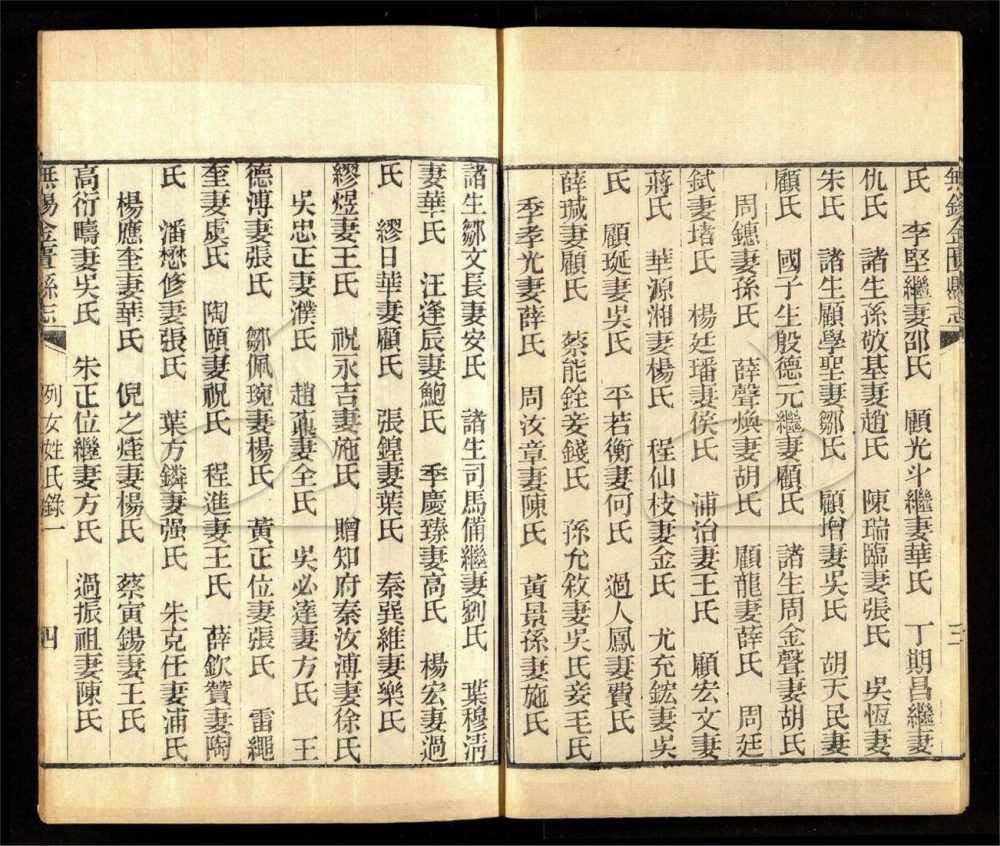 無錫金匱縣志
三
氏　李堅繼妻邵氏　顧光斗繼妻華氏　丁期昌繼妻
仇氏　諸生孫敬基妻趙氏　陳瑞臨妻張氏　吳恆妻
朱氏　諸生顧學聖妻鄒氏　顧增妻吳氏　胡天民妻
顧氏　國子生殷德元繼妻顧氏　諸生周金聲妻胡氏
周鏸妻孫氏　薛聲煥妻胡氏　顧龍妻薛氏　周廷
鉽妻堵氏　楊廷璠妻侯氏　浦治妻王氏　顧宏文妻
蔣氏　華源湘妻楊氏　程仙枝妻金氏　尤充鋐妻吳
氏　顧珽妻吳氏　平若衡妻何氏　過人鳳妻費氏
薛瑊妻顧氏　蔡能銓妾錢氏　孫允敘妻吳氏妾毛氏
季孝光妻薛氏　周汝章妻陳氏　黃景孫妻施氏
諸生鄒文長妻安氏　諸生司馬備繼妻劉氏　葉穆清
妻華氏　汪逢辰妻鮑氏　季慶臻妻高氏　楊宏妻過
氏　繆日華妻顧氏　張鍠妻葉氏　秦巽維妻樂氏
繆煜妻王氏　祝永吉妻施氏　贈知府秦汝溥妻徐氏
吳忠正妻濮氏　趙　妻全氏　吳必達妻方氏　王
德溥妻張氏　鄒佩琬妻楊氏　黃正位妻張氏　雷繩
奎妻虞氏　陶頤妻祝氏　程進妻王氏　薛欽贊妻陶
氏　潘懋修妻張氏　葉方鏻妻强氏　朱克任妻浦氏
楊應奎妻華氏　倪之煃妻楊氏　蔡寅錫妻王氏
高衍疇妻吳氏　朱正位繼妻方氏　過振祖妻陳氏
無錫金匱縣志
列女姓氏錄一
四